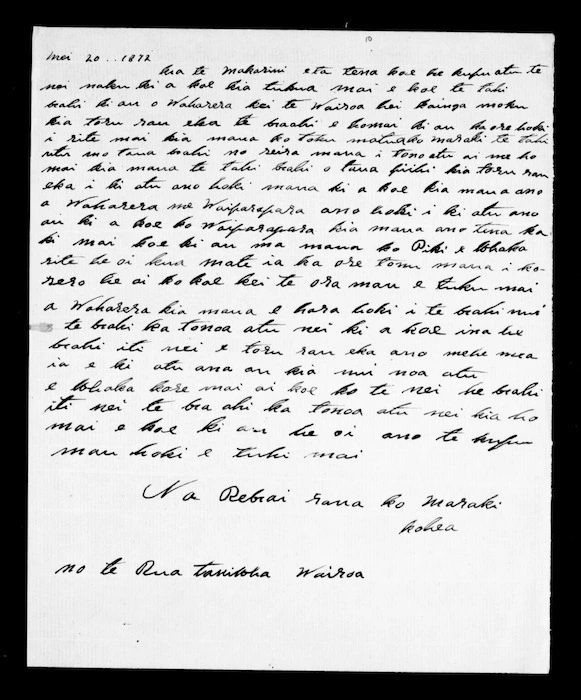 10
Mei 20.. 1872
kia te Makarini eta tena koe he kupu atu te
nei naku ki a koe kia tukua mai e koe te tahi
wahi ki au o Waharera kei te Wairoa hei kainga moku
kia toru rau eka te waahi e homai ki au ka ore hoki
i rite mai kia maua ko toku matua ko Maraki te tahi
utu mo taua wahi no reira maua i tono atu ai me ho
mai kia maua te tahi wahi o taua piihi kia toru rau
eka i ki atu ano hoki maua ki a koe kia maua ano
a Waharera me Waiparapara ano hoki i ki atu ano
au ki a koe ko Waiparapara kia maua ano tena ka
ki mai koe ki au ma maua ko Piki e whaka
rite he oi kua mate ia ka ore tonu maua i ko-
rero he oi ko koe kei te ora mau e tuku mai
a Waharera kia maua e hara hoki i te wahi nui
te wahi ka tonoa atu nei ki a koe ina he
wahi iti nei e toru rau eka ano mehe mea
ia e ki atu ana au kia nui noa atu
e whaka kore mai ai koe ko te nei he wahi
iti nei te wa ahi ka tonoa atu nei kia ho
mai e koe ki au he oi ano te kupu
mau hoki e tuhi mai
Na Rewai raua ko Maraki
kohea
no te Rua taniwha Wairoa